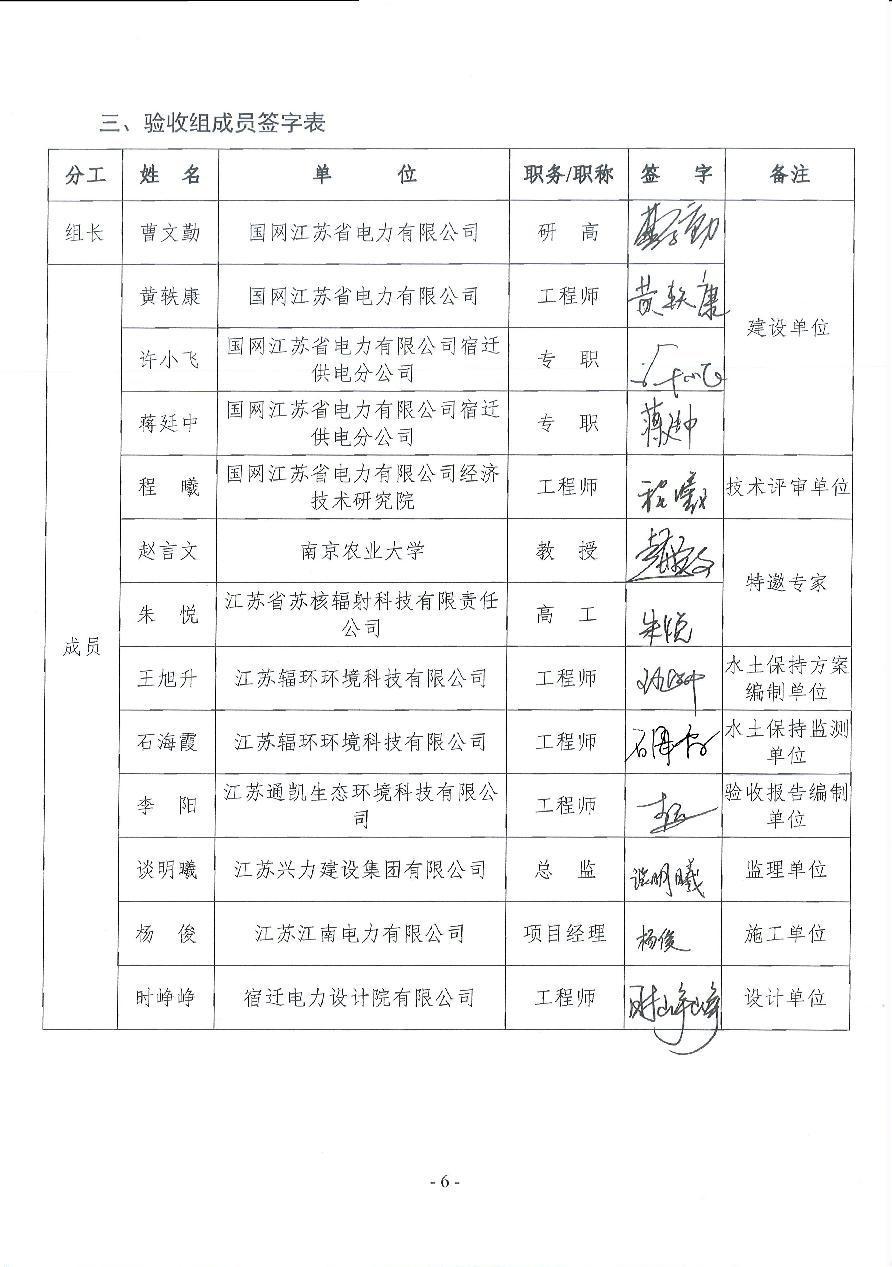 三、验收组成员签字表
分工 姓 名 单 位 职务/职称 签 字 备注
组长 曹文勤 国网江苏省电力有限公司 研 高
黄轶康 国网江苏省电力有限公司 工程师 黄轶康
建设单位
许小飞 国网江苏省电力有限公司宿迁
供电分公司 专 职
蒋廷中 国网江苏省电力有限公司宿迁
供电分公司 专 职 蒋廷中
程 曦 国网江苏省电力有限公司经济
技术研究院 工程师 程曦 技术评审单位
赵言文 南京农业大学 教 授
特邀专家
朱 悦 江苏省苏核辐射科技有限责任
公司 高 工 朱悦
成员
王旭升 江苏辐环环境科技有限公司 工程师 水土保持方案
编制单位
石海霞 江苏辐环环境科技有限公司 工程师 水土保持监测
单位
李 阳 江苏通凯生态环境科技有限公
司 工程师 验收报告编制
单位
谈明曦 江苏兴力建设集团有限公司 总 监 谈明曦 监理单位
杨 俊 江苏江南电力有限公司 项目经理 杨俊 施工单位
时峥峥 宿迁电力设计院有限公司 工程师 时峥峥 设计单位
- 6 -